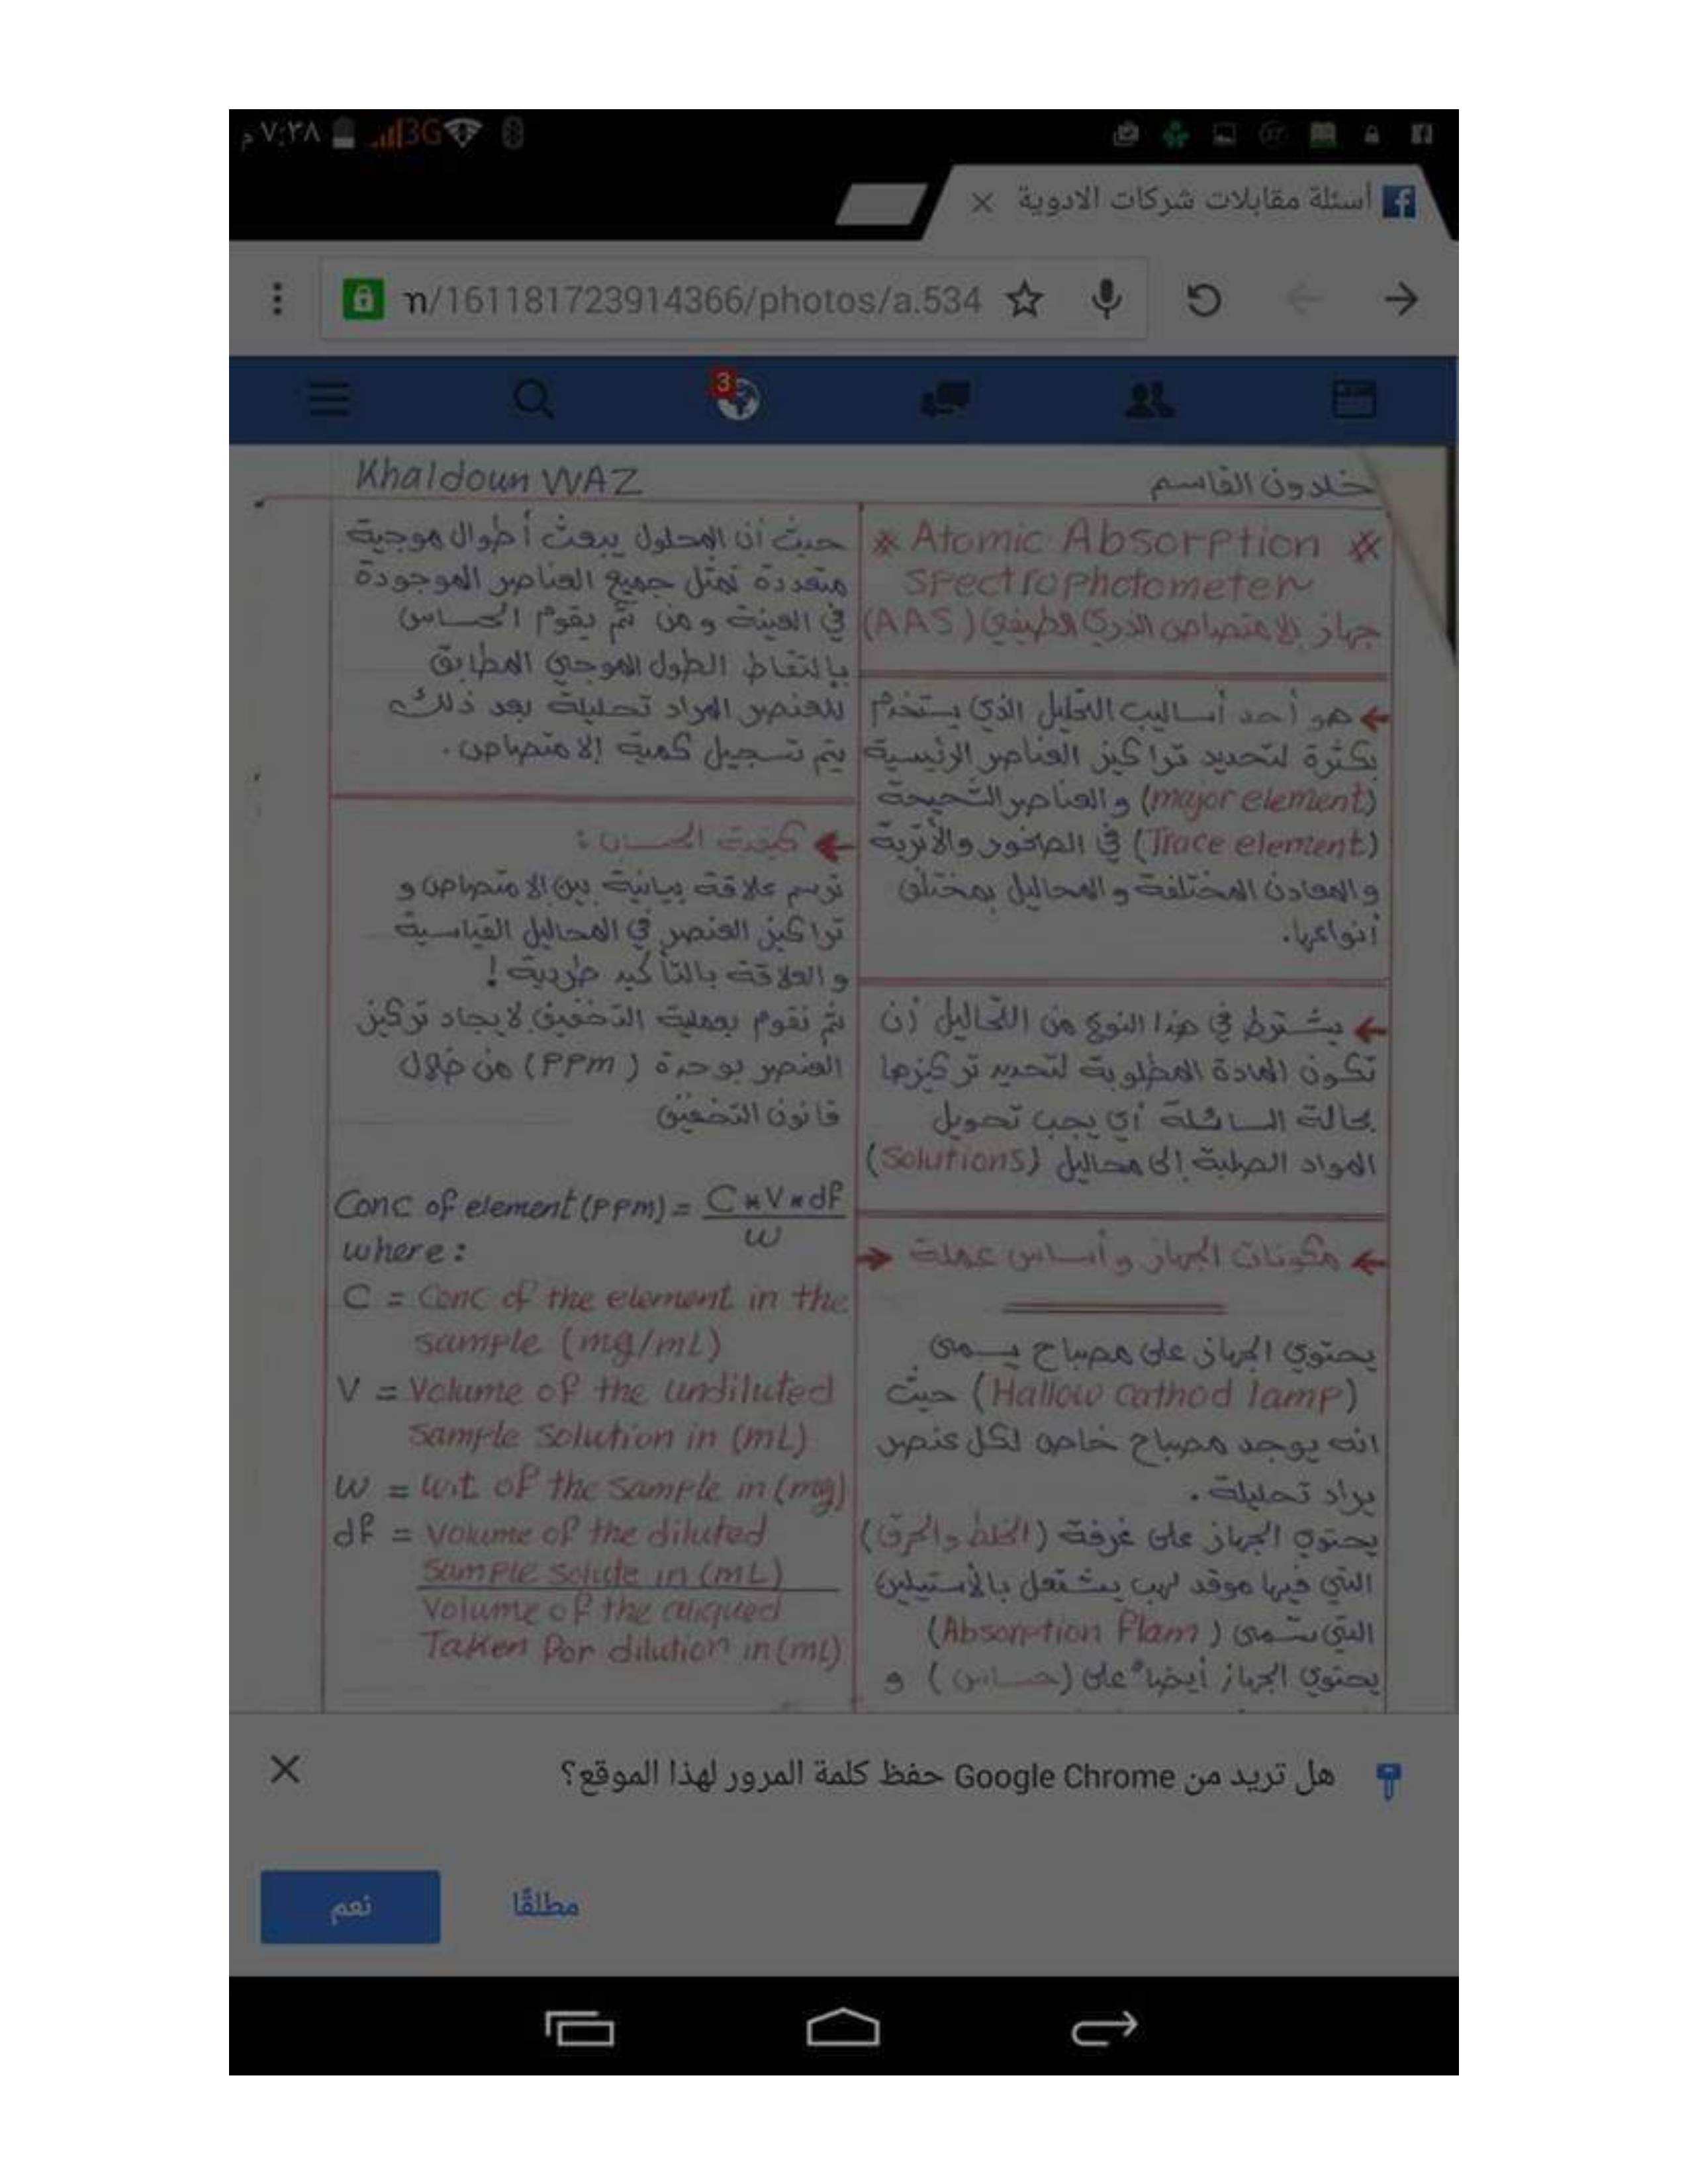 ٧:٣٨ م
3G
أسئلة مقابلات شركات الادوية
n/161181723914366/photos/a.534
3
خلدون القاسم
Khaldoun WAZ
* Atomic Absorption *
spectrophotometer
جهاز الامتصاص الذري الطيفي (AAS)
هو أحد أساليب التحليل الذي يستخدم
بكثرة لتحديد تراكيز العناصر الرئيسية
(major element) والعناصر الشحيحة
(Trace element) في الصخور والأتربة
والمعادن المختلفة والمحاليل بمختلف
أنواعها.
يشترط في هذا النوع من التحاليل أن
تكون المادة المطلوبة لتحديد تركيزها
بحالة السائلة أي يجب تحويل
المواد الصلبة إلى محاليل (Solutions)
مكونات الجهاز وأساس عملة
يحتوي الجهاز على مصباح يسمى
(Hallow cathod lamp) حيث
انه يوجد مصباح خاص لكل عنصر
يراد تحليلة.
يحتوي الجهاز على غرفة (الخلط والحرق)
التي فيها موقد لهب يشتعل بالأستيلين
التي تسمى (Absorption Flam)
يحتوي الجهاز أيضاً على (حساس) و
حيث أن المحلول يبعث أطوال موجية
متعددة تمثل جميع العناصر الموجودة
في العينة ومن ثم يقوم الحساس
بإلتقاط الطول الموجي المطابق
للعنصر المراد تحليلة بعد ذلك
يتم تسجيل كمية الامتصاص.
كيفية الحساب:
نرسم علاقة بيانية بين الامتصاص و
تراكيز العنصر في المحاليل القياسية
والعلاقة بالتأكيد طردية!
ثم نقوم بعملية التخفيف لايجاد تركيز
العنصر بوحدة (PPm) من خلال
قانون التخفيف
Conc of element (PPm) = C*V*df
w
where:
C = Conc of the element in the
sample (mg/mL)
V = Volume of the undiluted
sample solution in (mL)
w = wt of the sample in (mg)
df = Volume of the diluted
sample solute in (mL)
Volume of the aliqued
Taken For dilution in (mL)
هل تريد من Google Chrome حفظ كلمة المرور لهذا الموقع؟
مطلقًا
نعم